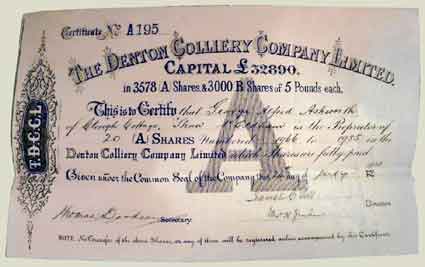 Certificate No A195
THE DENTON COLLIERY COMPANY LIMITED.
CAPITAL £32890.
in 3578 A Shares & 3000 B Shares of 5 Pounds each.
This is to Certify that George Alfred Ashworth
of Clough Cottage, Shaw Nr Oldham is the Proprietor of
20 (A) SHARES Numbered 1966 to 1985 in the
Denton Colliery Company Limited which Shares are fully paid.
Given under the Common Seal of the Company this day of
Director
Thomas Secretary.
NOTE. No Transfer of the above Shares, or any of them will be registered unless accompanied by this Certificate.
T.D.C.C.L.
A